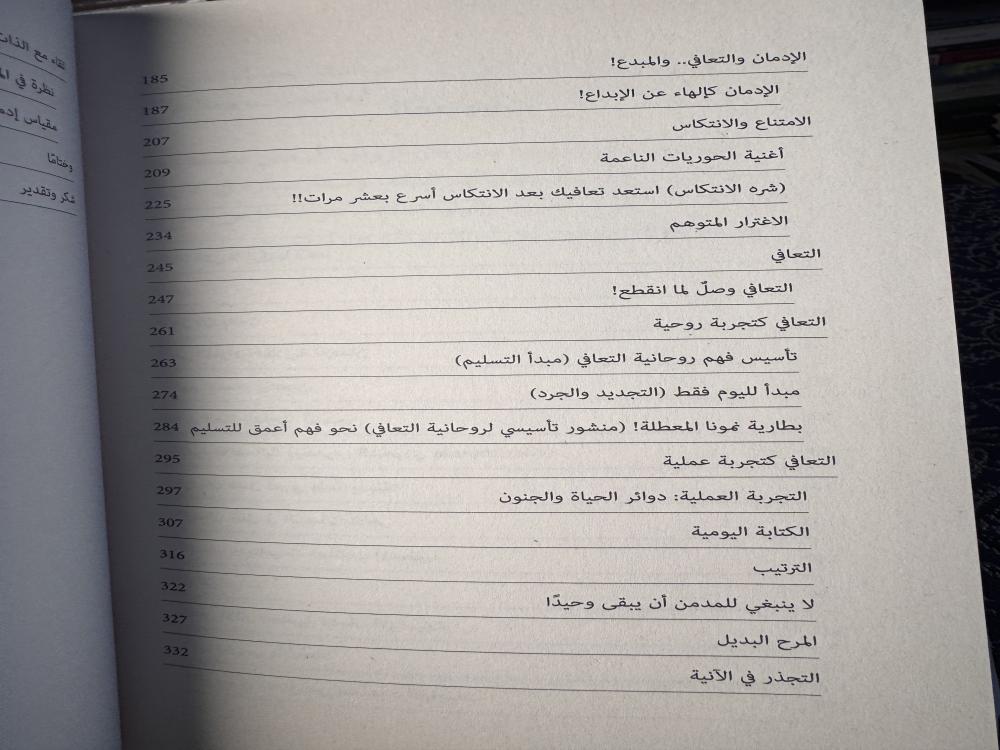 الإدمان والتعافي.. والمبدع! 185
الإدمان كإلهاء عن الإبداع! 187
الامتناع والانتكاس 207
أغنية الحوريات الناعمة 209
(شره الانتكاس) استعد تعافيك بعد الانتكاس أسرع بعشر مرات!! 225
الاغترار المتوهم 234
التعافي 245
التعافي وصلٌ لما انقطع! 247
التعافي كتجربة روحية 261
تأسيس فهم روحانية التعافي (مبدأ التسليم) 263
مبدأ لليوم فقط (التجديد والجرد) 274
بطارية نمونا المعطلة! (منشور تأسيسي لروحانية التعافي) نحو فهم أعمق للتسليم 284
التعافي كتجربة عملية 295
التجربة العملية: دوائر الحياة والجنون 297
الكتابة اليومية 307
الترتيب 316
لا ينبغي للمدمن أن يبقى وحيدًا 322
المرح البديل 327
التجذر في الآنية 332
لقاء مع الذات
نظرة في
مقياس
وختامًا
شكر وتقدير